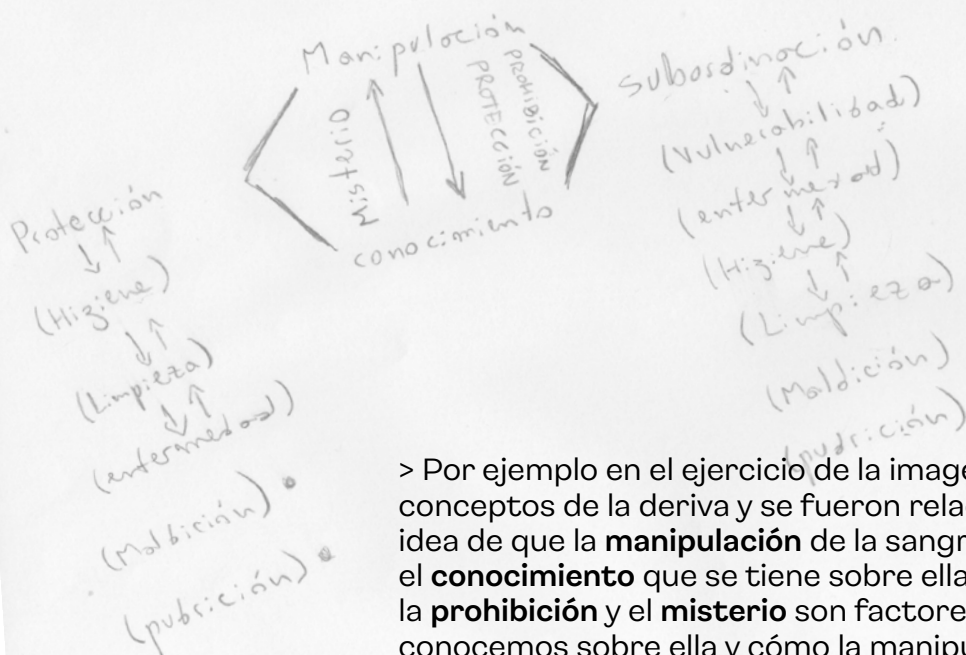 Manipulación
Misterio
PROHIBICIÓN
PROTECCIÓN
conocimiento
Protección
(Higiene)
(Limpieza)
(enfermedad)
(Maldición)
(pudrición)
Subordinación
(Vulnerabilidad)
(enfermedad)
(Higiene)
(Limpieza)
(Maldición)
(pudrición)
> Por ejemplo en el ejercicio de la image
conceptos de la deriva y se fueron rela
idea de que la manipulación de la sangr
el conocimiento que se tiene sobre ella
la prohibición y el misterio son factore
conocemos sobre ella y cómo la manipu